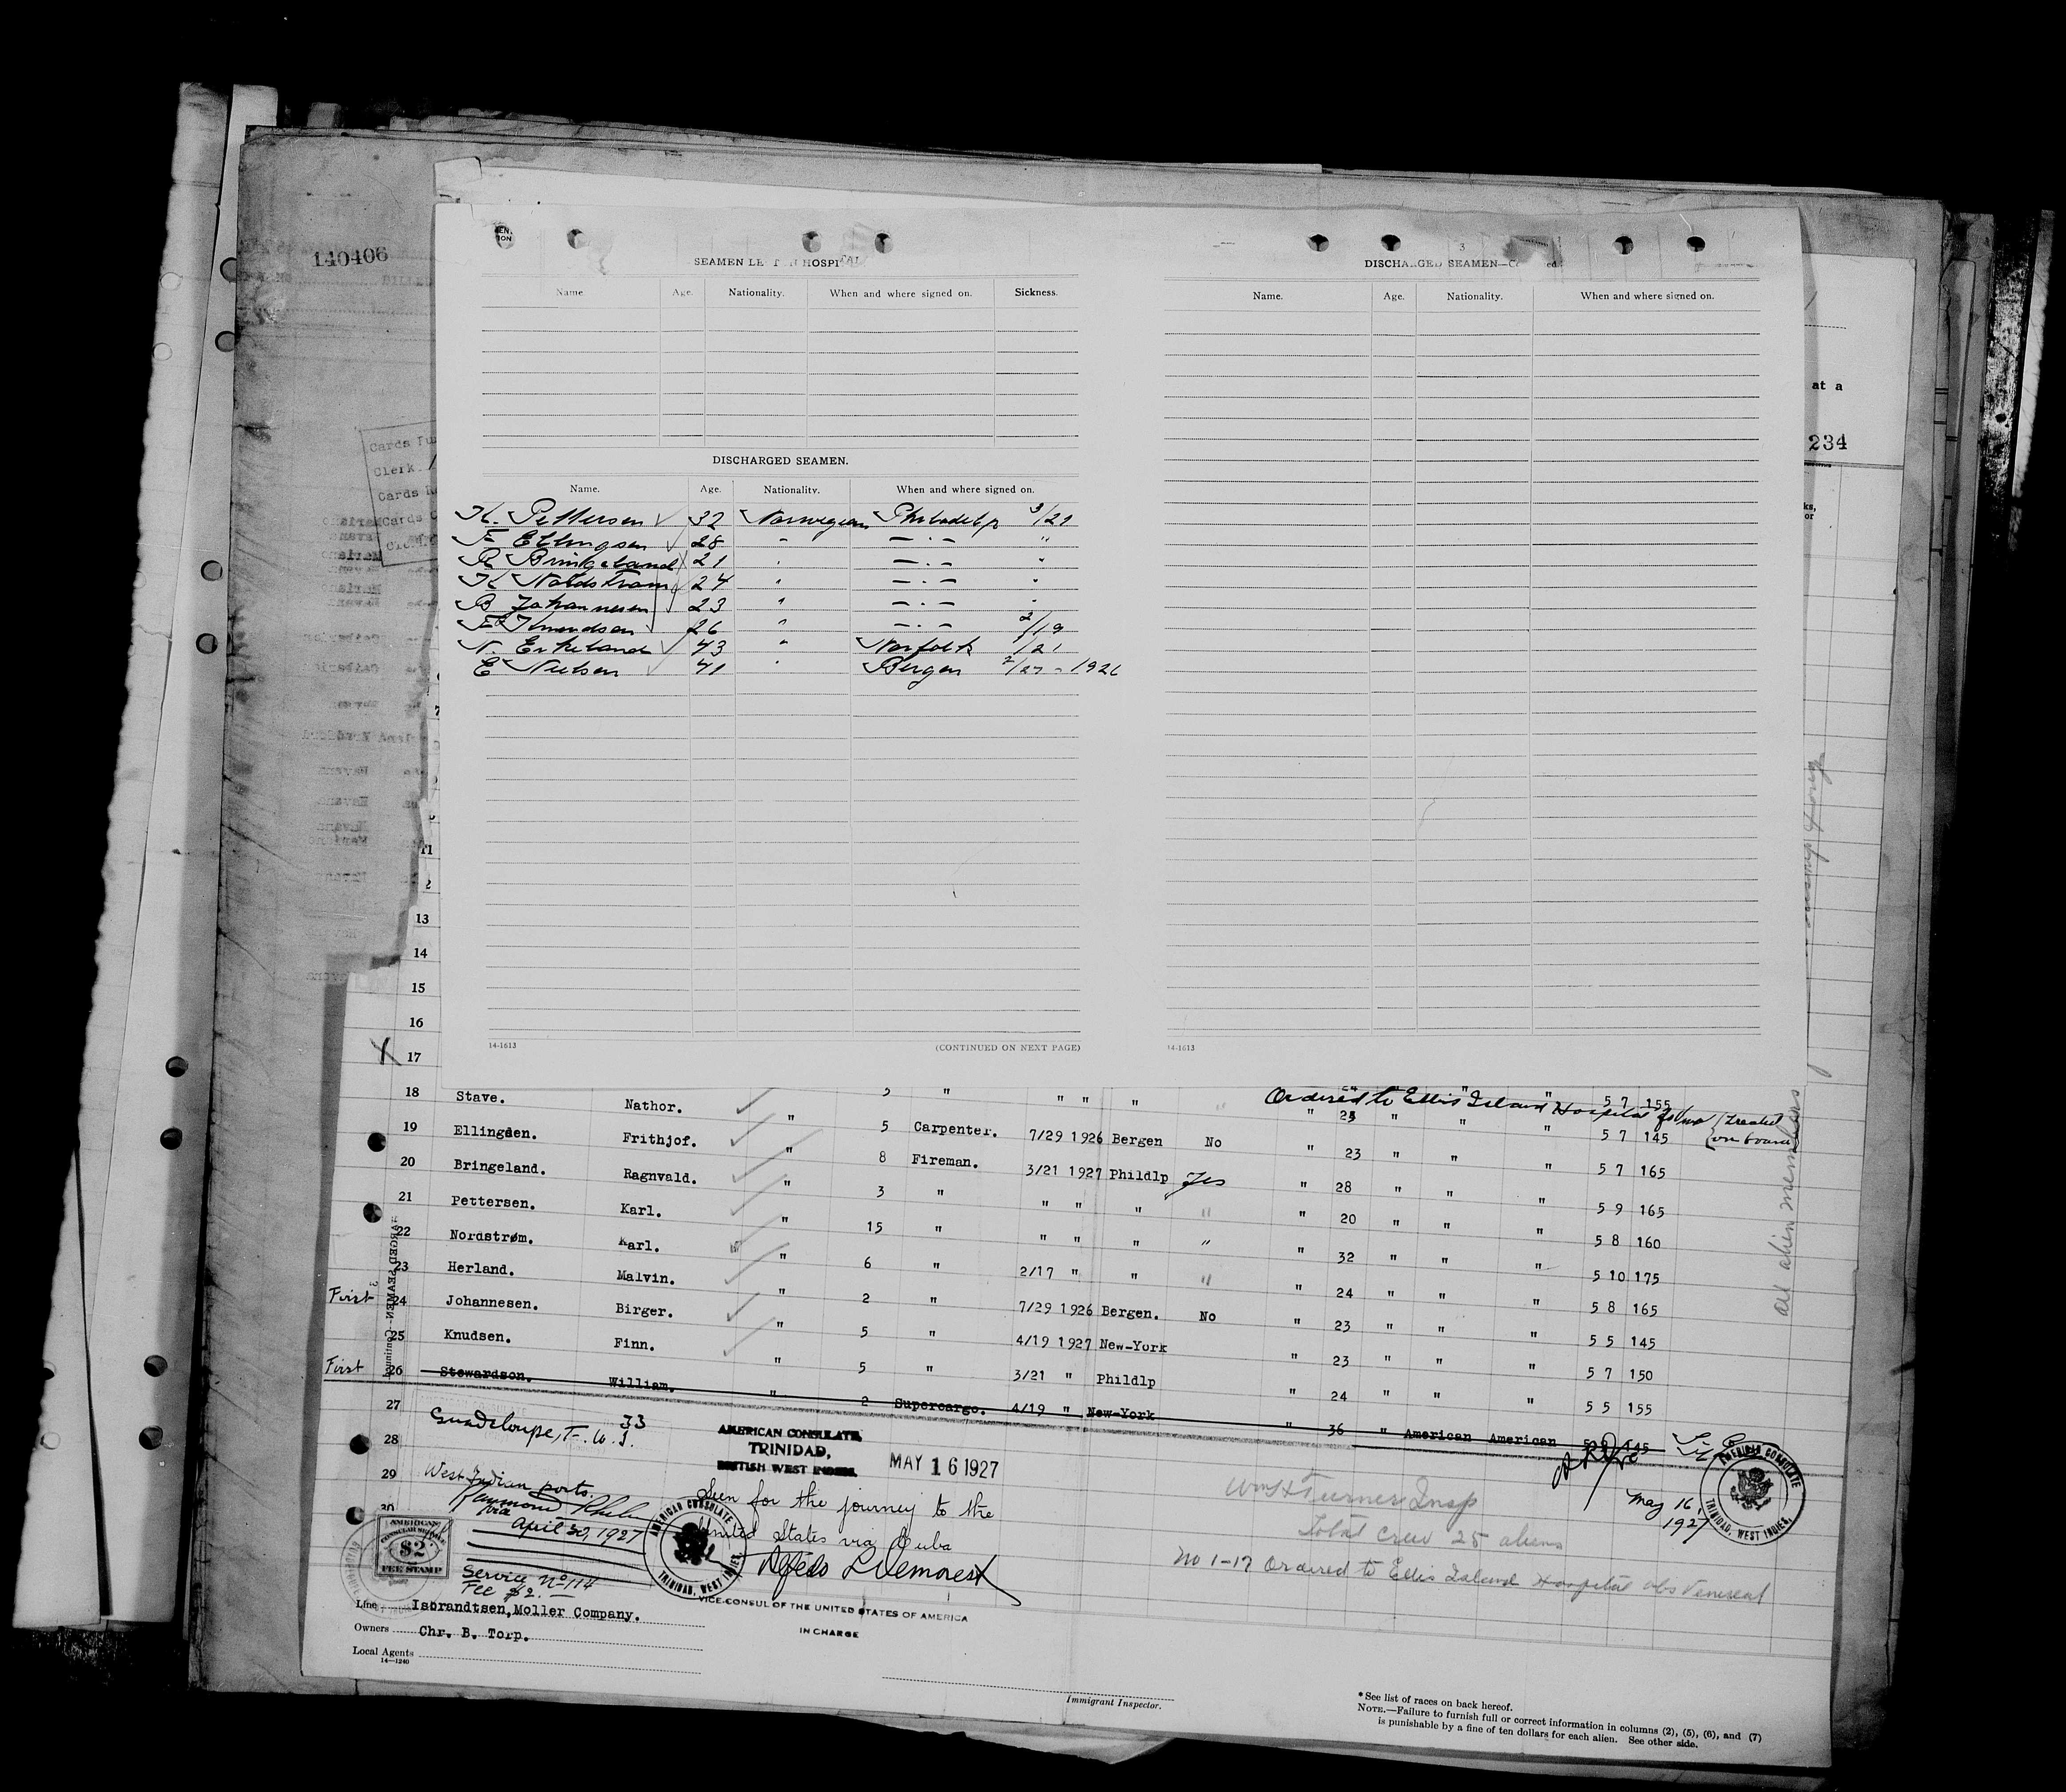 140406
SEAMEN LE T N HOSPITAL
Name Age. Nationality. When and where signed on. Sickness.
DISCHARGED SEAMEN.
Name. Age. Nationality. When and where signed on.
K. Pettersen 32 Norwegian Philadelp 3/21
F Ellingsen 28 " — . — "
R Bringeland 21 " — . — "
K Nordstrom 24 " — . — "
B Johannesen 23 " — . — "
F Knudsen 26 " — . — 2/19
N. Erkeland 43 " Norfolk /21
E Nielsen 41 " Bergen 2/27 - 1926
14-1613 (CONTINUED ON NEXT PAGE)
3
DISCHARGED SEAMEN—Co ed.
Name. Age. Nationality. When and where signed on.
14-1613
at a
234
ks,
or
Cards
Clerk
Cards
Cards
11
2
13
14
15
16
17
18 Stave. Nathor. " 5 " " " " " 24 " " 5 7 155
Ordered to Ellis Island Hospital treated on board
19 Ellingsen. Frithjof. " 5 Carpenter. 7/29 1926 Bergen No " 23 " " " 5 7 145
20 Bringeland. Ragnvald. " 8 Fireman. 3/21 1927 Phildlp Yes " 23 " " " 5 7 165
21 Pettersen. Karl. " 3 " " " " " " 28 " " " 5 9 165
22 Nordstrøm. Karl. " 15 " " " " " " 20 " " " 5 8 160
23 Herland. Malvin. " 6 " 2/17 " " " " 32 " " " 5 10 175
First 24 Johannesen. Birger. " 2 " 7/29 1926 Bergen. No " 24 " " " 5 8 165
25 Knudsen. Finn. " 5 " 4/19 1927 New-York " 23 " " " 5 5 145
First 26 Stewardson. William. " 5 " 3/21 " Phildlp " 23 " " " 5 7 150
27 " 2 Supercargo. 4/19 " New-York " 24 " " " 5 5 155
28 " 36 " American American
29
30
All alien members
Guadeloupe, F. W. I.
33
West Indian ports.
via
April 30, 1927
AMERICAN
CONSULAR SERVICE
$2
FEE STAMP
Service No 114
Fee $2.
AMERICAN CONSULATE,
TRINIDAD,
BRITISH WEST INDIES.
MAY 16 1927
Seen for the journey to the
United States via Cuba
AMERICAN CONSULATE
TRINIDAD, WEST INDIES.
VICE-CONSUL OF THE UNITED STATES OF AMERICA
IN CHARGE
Wm H Turner Insp
Total crew 25 aliens
No 1-17 Ordered to Ellis Island Hospital obs Venereal
May 16,
1927
AMERICAN CONSULATE
TRINIDAD, WEST INDIES.
Line Isbrandtsen,Moller Company.
Owners Chr. B. Torp.
Local Agents
14—1240
Immigrant Inspector.
*See list of races on back hereof.
NOTE.—Failure to furnish full or correct information in columns (2), (5), (6), and (7)
is punishable by a fine of ten dollars for each alien. See other side.